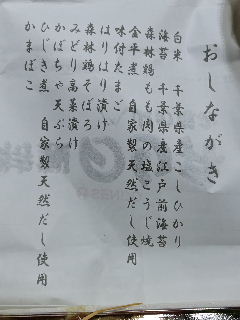 おしながき
白米　千葉県産こしひかり
海苔　千葉県産江戸前海苔
森林鶏もも肉の塩こうじ焼
金平煮　自家製天然だし使用
味付たまご
はりはり漬け
森林鶏そぼろ
みどり高菜漬け
かぼちゃ天ぷら
ひじき煮　自家製天然だし使用
かまぼこ